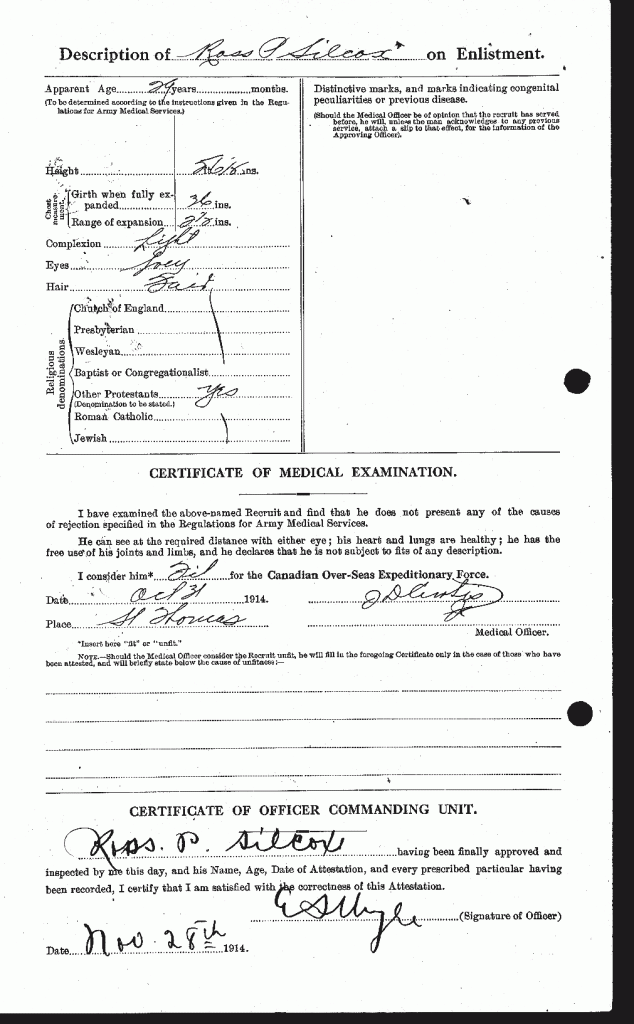 Description of Ross P Silcox on Enlistment.
Apparent Age 29 years months.
(To be determined according to the instructions given in the Regulations for Army Medical Services.)
Height ins.
Chest measurement.
Girth when fully expanded 36 ins.
Range of expansion ins.
Complexion Light
Eyes Grey
Hair Fair
Religious denominations.
Church of England
Presbyterian
Wesleyan
Baptist or Congregationalist
Other Protestants Yes
(Denomination to be stated.)
Roman Catholic
Jewish
Distinctive marks, and marks indicating congenital
peculiarities or previous disease.
(Should the Medical Officer be of opinion that the recruit has served
before, he will, unless the man acknowledges to any previous
service, attach a slip to that effect, for the information of the
Approving Officer).
CERTIFICATE OF MEDICAL EXAMINATION.
I have examined the above-named Recruit and find that he does not present any of the causes
of rejection specified in the Regulations for Army Medical Services.
He can see at the required distance with either eye; his heart and lungs are healthy; he has the
free use of his joints and limbs, and he declares that he is not subject to fits of any description.
I consider him* Fit for the Canadian Over-Seas Expeditionary Force.
Date Oct 31 1914.
Place St Thomas
Medical Officer.
*Insert here "fit" or "unfit."
NOTE.—Should the Medical Officer consider the Recruit unfit, he will fill in the foregoing Certificate only in the case of those who have
been attested, and will briefly state below the cause of unfitness:—
CERTIFICATE OF OFFICER COMMANDING UNIT.
Ross. P. Silcox having been finally approved and
inspected by me this day, and his Name, Age, Date of Attestation, and every prescribed particular having
been recorded, I certify that I am satisfied with the correctness of this Attestation.
(Signature of Officer)
Date Nov 28th 1914.